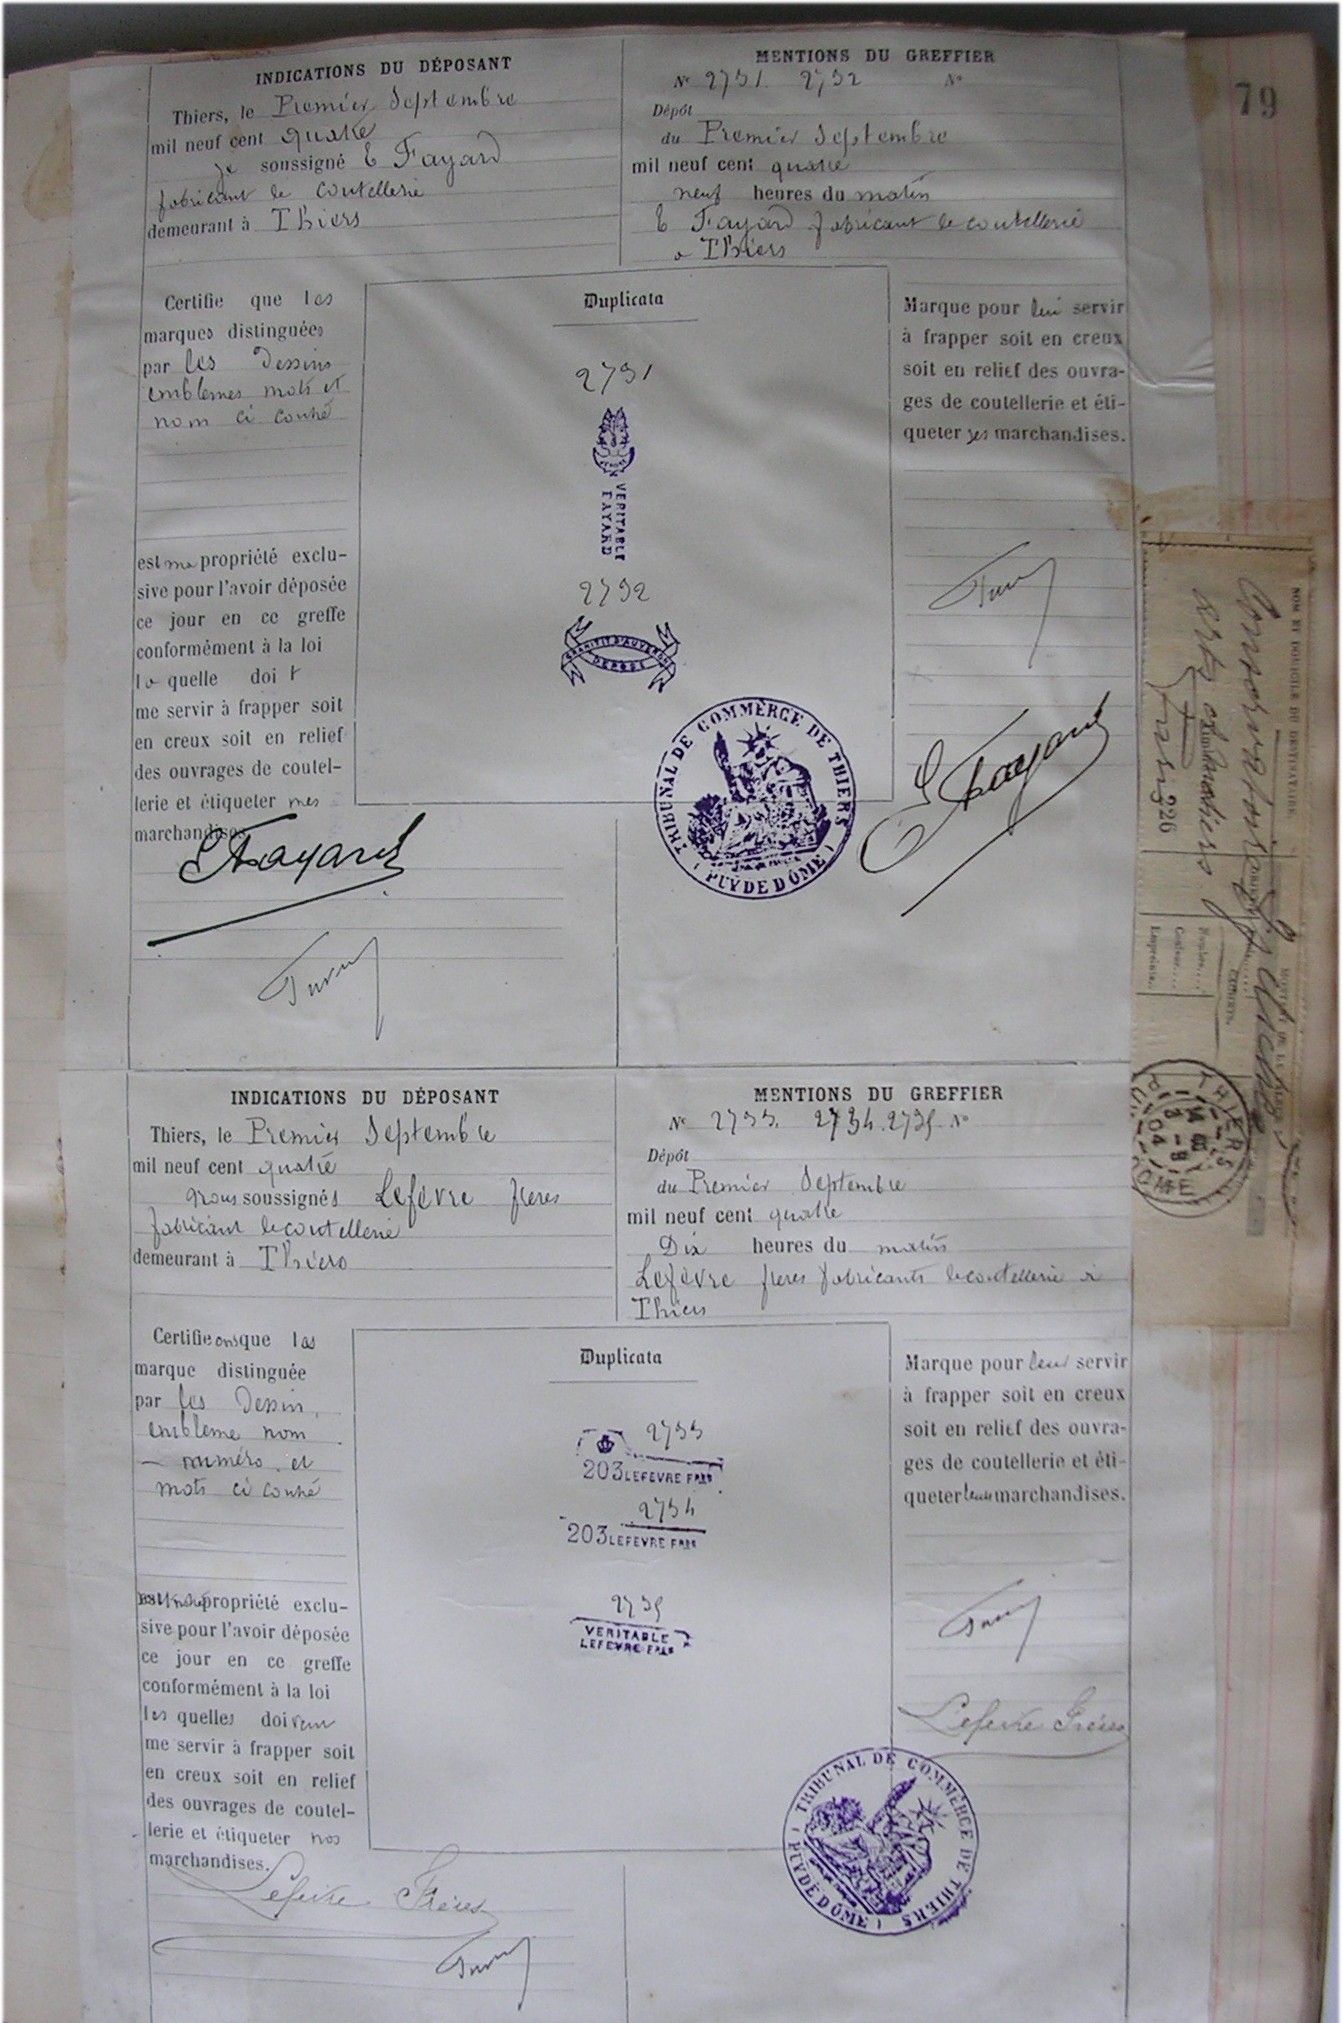 79
INDICATIONS DU DÉPOSANT
Thiers, le Premier Septembre
mil neuf cent quatre
je soussigné E Fayard
fabricant de coutellerie
demeurant à Thiers
MENTIONS DU GREFFIER
No 2731 2732 No
Dépôt
du Premier Septembre
mil neuf cent quatre
neuf heures du matin
E Fayard fabricant de coutellerie
a Thiers
Certifie que les
marques distinguées
par les Dessins
emblemes mots et
nom ci contre
est ma propriété exclu-
sive pour l'avoir déposée
ce jour en ce greffe
conformément à la loi
la quelle doit
me servir à frapper soit
en creux soit en relief
des ouvrages de coutel-
lerie et étiqueter mes
marchandises.
E Fayard
Duplicata
2731
VERITABLE
FAYARD
2732
DEPOSE
TRIBUNAL DE COMMERCE DE THIERS
( PUY DE DÔME )
Marque pour lui servir
à frapper soit en creux
soit en relief des ouvra-
ges de coutellerie et éti-
queter ses marchandises.
E Fayard
NOM ET DOMICILE DU DESTINATAIRE.
Conservatoire
arts et métiers
Paris
226
Nombre....
Couleur....
Empreinte..
THIERS
PUY DE DOME
INDICATIONS DU DÉPOSANT
Thiers, le Premier Septembre
mil neuf cent quatre
nous soussignés Lefèvre freres
fabricant de coutellerie
demeurant à Thiers
MENTIONS DU GREFFIER
No 2733. 2734. 2735 No
Dépôt
du Premier Septembre
mil neuf cent quatre
Dix heures du matin
Lefèvre freres fabricants de coutellerie à
Thiers
Certifieons que las
marque distinguée
par les Dessin,
embleme nom
numéro et
mots ci contre
propriété exclu-
sive pour l'avoir déposée
ce jour en ce greffe
conformément à la loi
les quelles doivent
me servir à frapper soit
en creux soit en relief
des ouvrages de coutel-
lerie et étiqueter nos
marchandises.
Lefèvre Frères
Duplicata
2733
203 LEFEVRE FRES
2734
203 LEFEVRE FRES
2735
VERITABLE
LEFEVRE FRES
Marque pour leur servir
à frapper soit en creux
soit en relief des ouvra-
ges de coutellerie et éti-
queter leurs marchandises.
Lefèvre Frères
TRIBUNAL DE COMMERCE DE THIERS
( PUY DE DÔME )